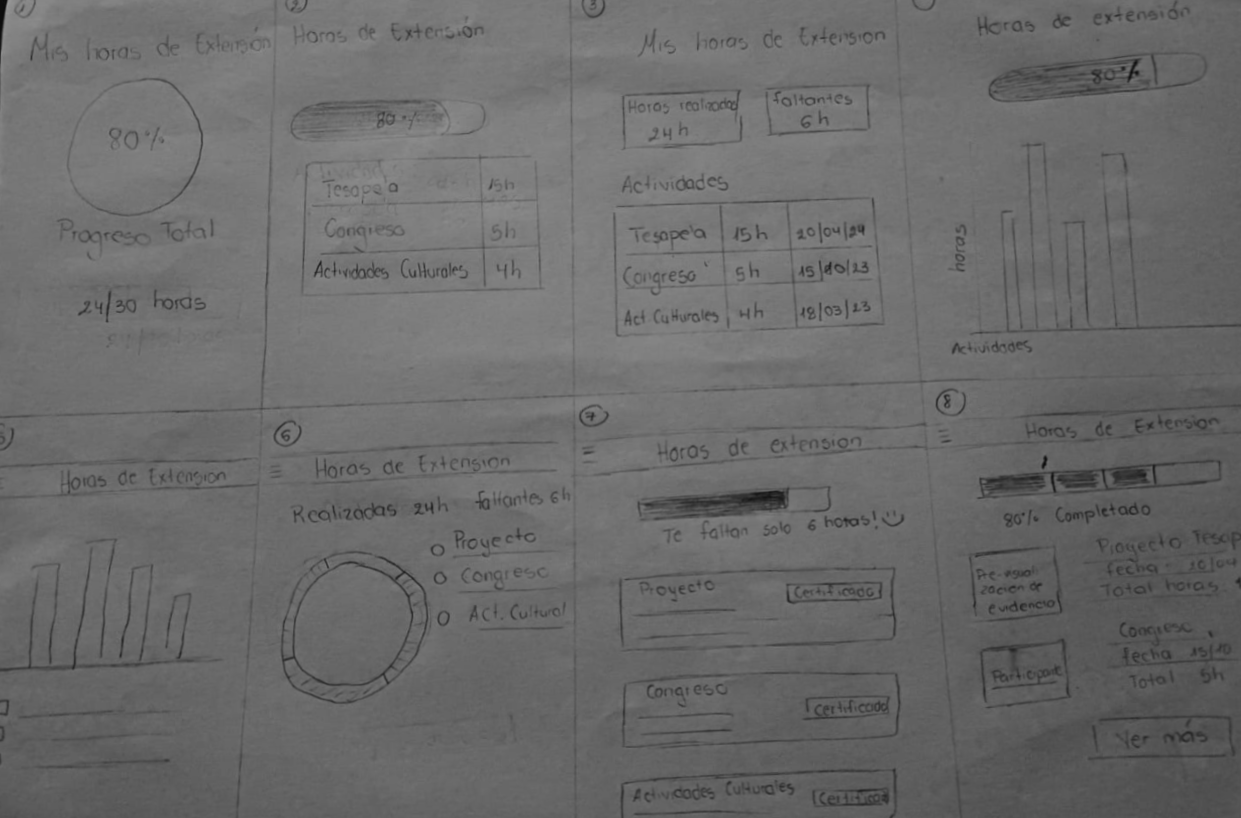 1
Mis horas de Extensión
80%
Progreso Total
24/30 horas
2
Horas de Extensión
80%
Tesapela 15h
Congreso 5h
Actividades Culturales 4h
3
Mis horas de Extension
Horas realizadas
24h
faltantes
6h
Actividades
Tesapela 15h 20/04/24
Congreso 5h 15/10/23
Act Culturales 4h 18/03/23
Horas de extensión
80%
horas
Actividades
Horas de Extension
6
Horas de Extension
Realizadas 24h faltantes 6h
Proyecto
Congreso
Act. Cultural
7
Horas de extension
Te faltan solo 6 horas!
Proyecto
Certificado
Congreso
Certificado
Actividades Culturales
8
Horas de Extension
80% Completado
Pre-visuali
zacion de
evidencia
Proyecto Tesap
fecha 20/04
Total horas
Participante
Congreso
fecha 15/10
Total 5h
Ver más